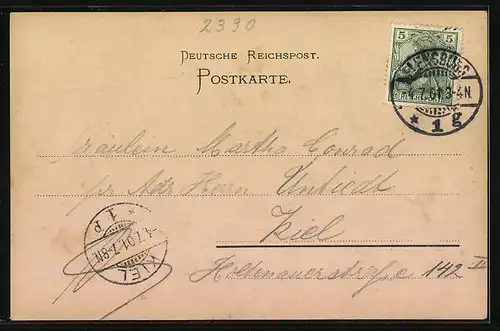 2390
DEUTSCHE REICHSPOST.
POSTKARTE.
5 5
FLENSBURG
4.7.01.3-4N.
* 1 g
Fräulein Martha Conrad
pr Adr Herrn Untiedt
Kiel
Holtenauerstraße 142 II
KIEL
4.7.01.7-8N.
* 1. P